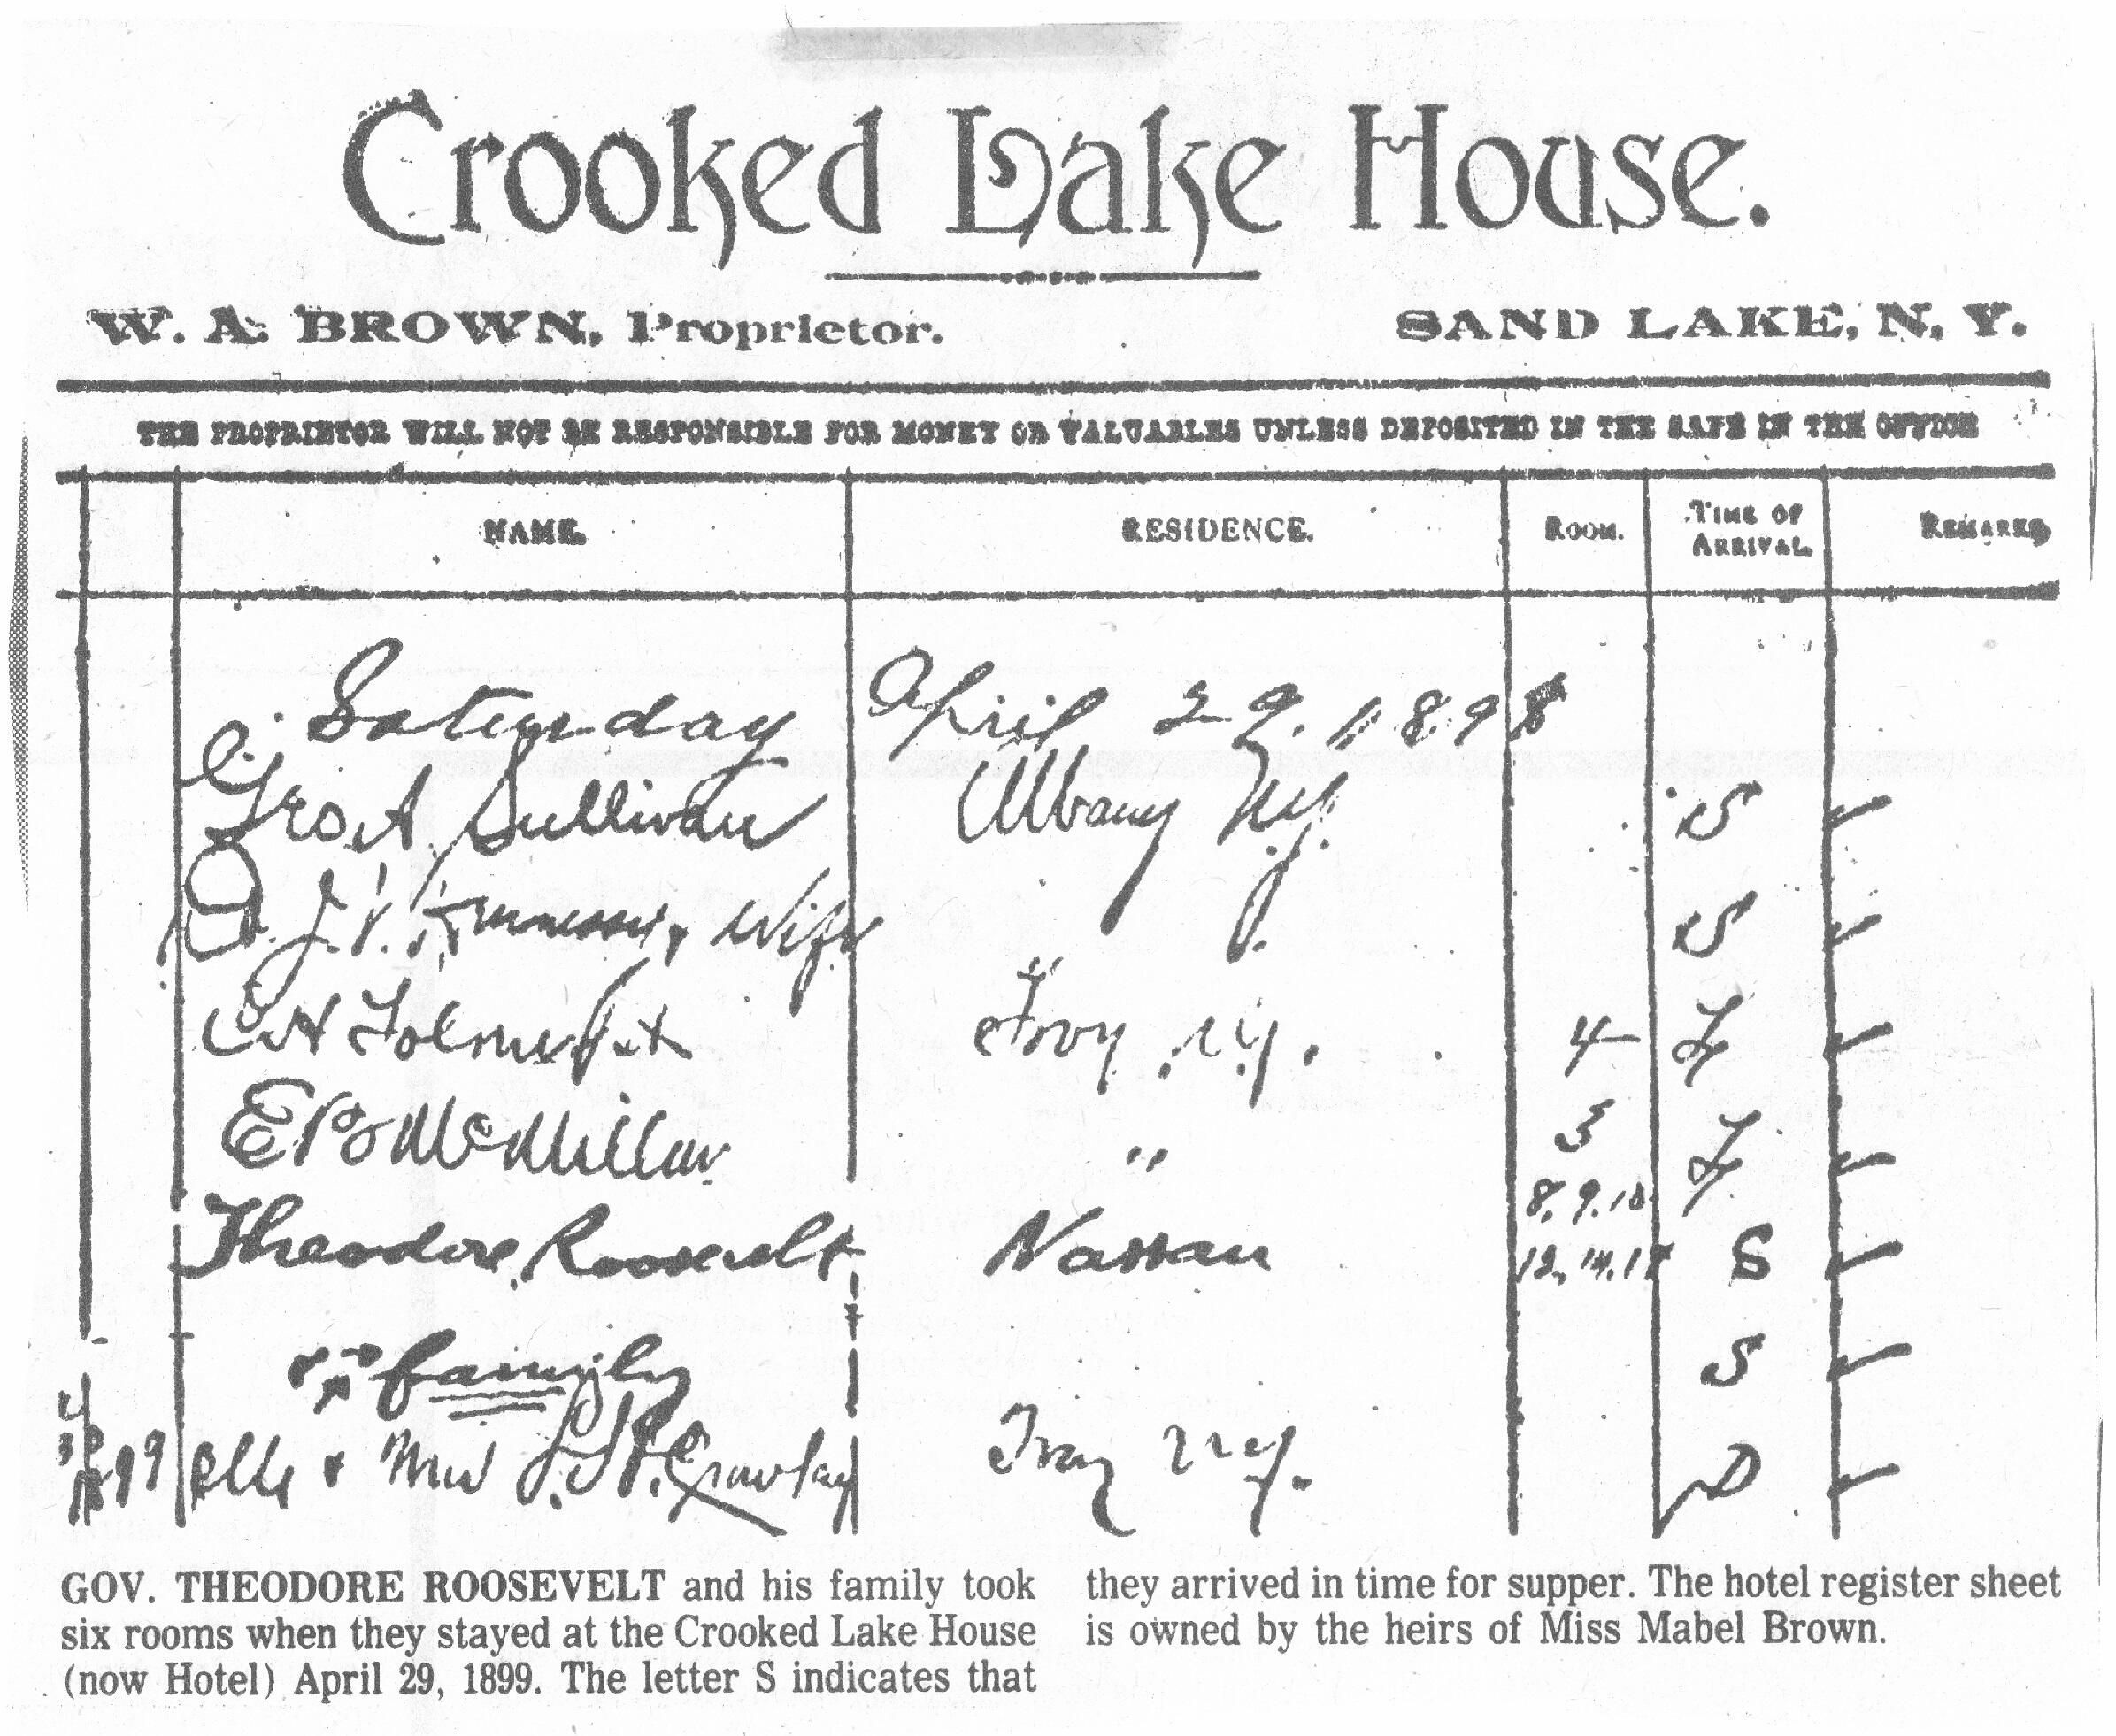 Crooked Lake House.
W. A. BROWN, Proprietor. SAND LAKE, N. Y.
THE PROPRIETOR WILL NOT BE RESPONSIBLE FOR MONEY OR VALUABLES UNLESS DEPOSITED IN THE SAFE IN THE OFFICE
NAME. RESIDENCE. ROOM. TIME OF ARRIVAL. REMARKS
Saturday April 29. 1898
Geo A. Sullivan Albany N.Y. S
J. V. & Wife S
C H Troy N.Y. 4 L
E B McMillan " 3 L
8. 9. 10
Theodore Roosevelt Nassau 12. 14. S
& family S
99 & Mrs Troy N.Y. D
GOV. THEODORE ROOSEVELT and his family took
six rooms when they stayed at the Crooked Lake House
(now Hotel) April 29, 1899. The letter S indicates that
they arrived in time for supper. The hotel register sheet
is owned by the heirs of Miss Mabel Brown.